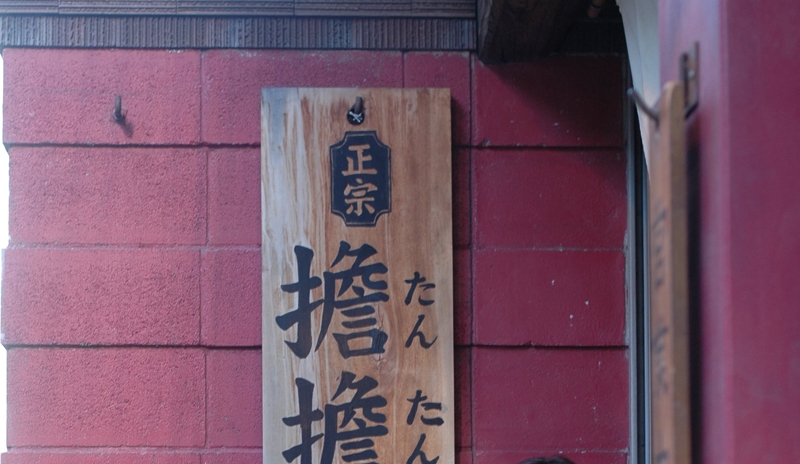 正宗
擔擔
たんたん